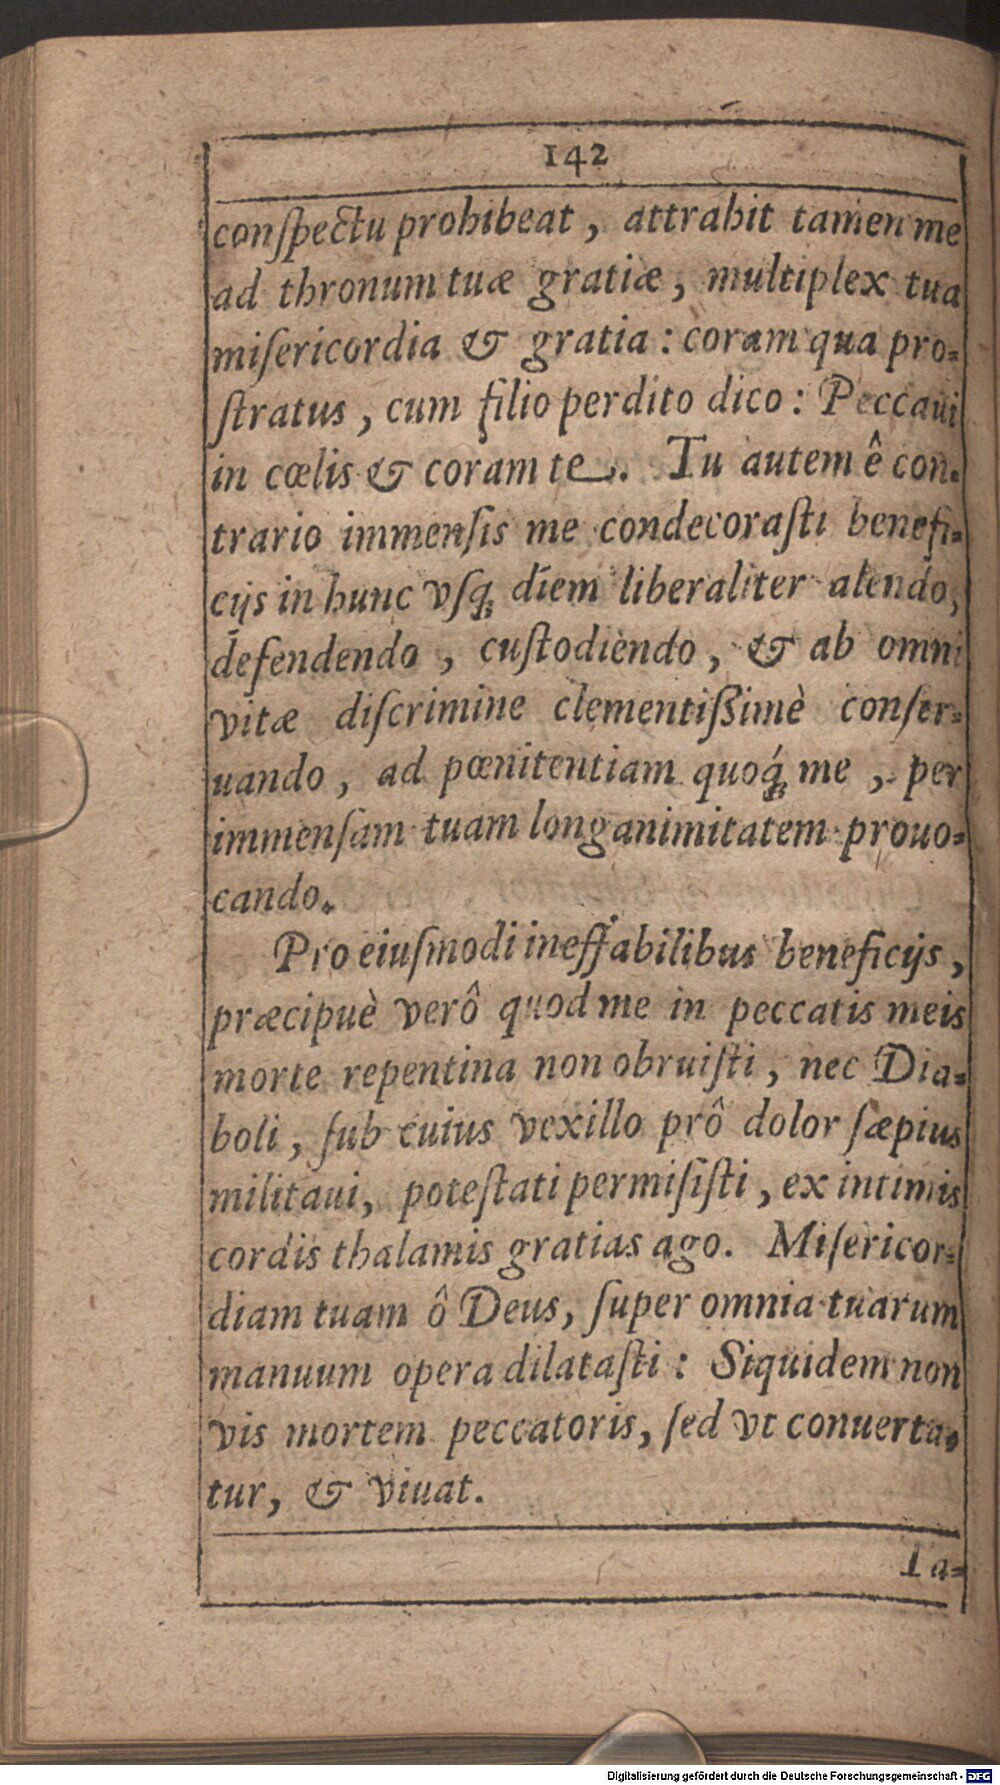 142
conſpectu prohibeat, attrahit tamen me
ad thronum tuæ gratiæ, multiplex tua
miſericordia & gratia: coram qua pro=
ſtratus, cum filio perdito dico: Peccaui
in cœlis & coram te. Tu autem ê con=
trario immenſis me condecoraſti benefi=
cijs in hunc vſq; diem liberaliter alendo,
defendendo, cuſtodiendo, & ab omni
vitæ diſcrimine clementiſſimè conſer=
uando, ad pœnitentiam quoq́; me, per
immenſam tuam longanimitatem prouo=
cando.
Pro eiuſmodi ineffabilibus beneficijs,
præcipuè verô quod me in peccatis meis
morte repentina non obruiſti, nec Dia=
boli, ſub cuius vexillo prô dolor ſæpius
militaui, poteſtati permiſiſti, ex intimis
cordis thalamis gratias ago. Miſericor=
diam tuam ô Deus, ſuper omnia tuarum
manuum opera dilataſti: Siquidem non
vis mortem peccatoris, ſed vt conuerta=
tur, & viuat.
Ia=
Digitalisierung gefördert durch die Deutsche Forschungsgemeinschaft - DFG